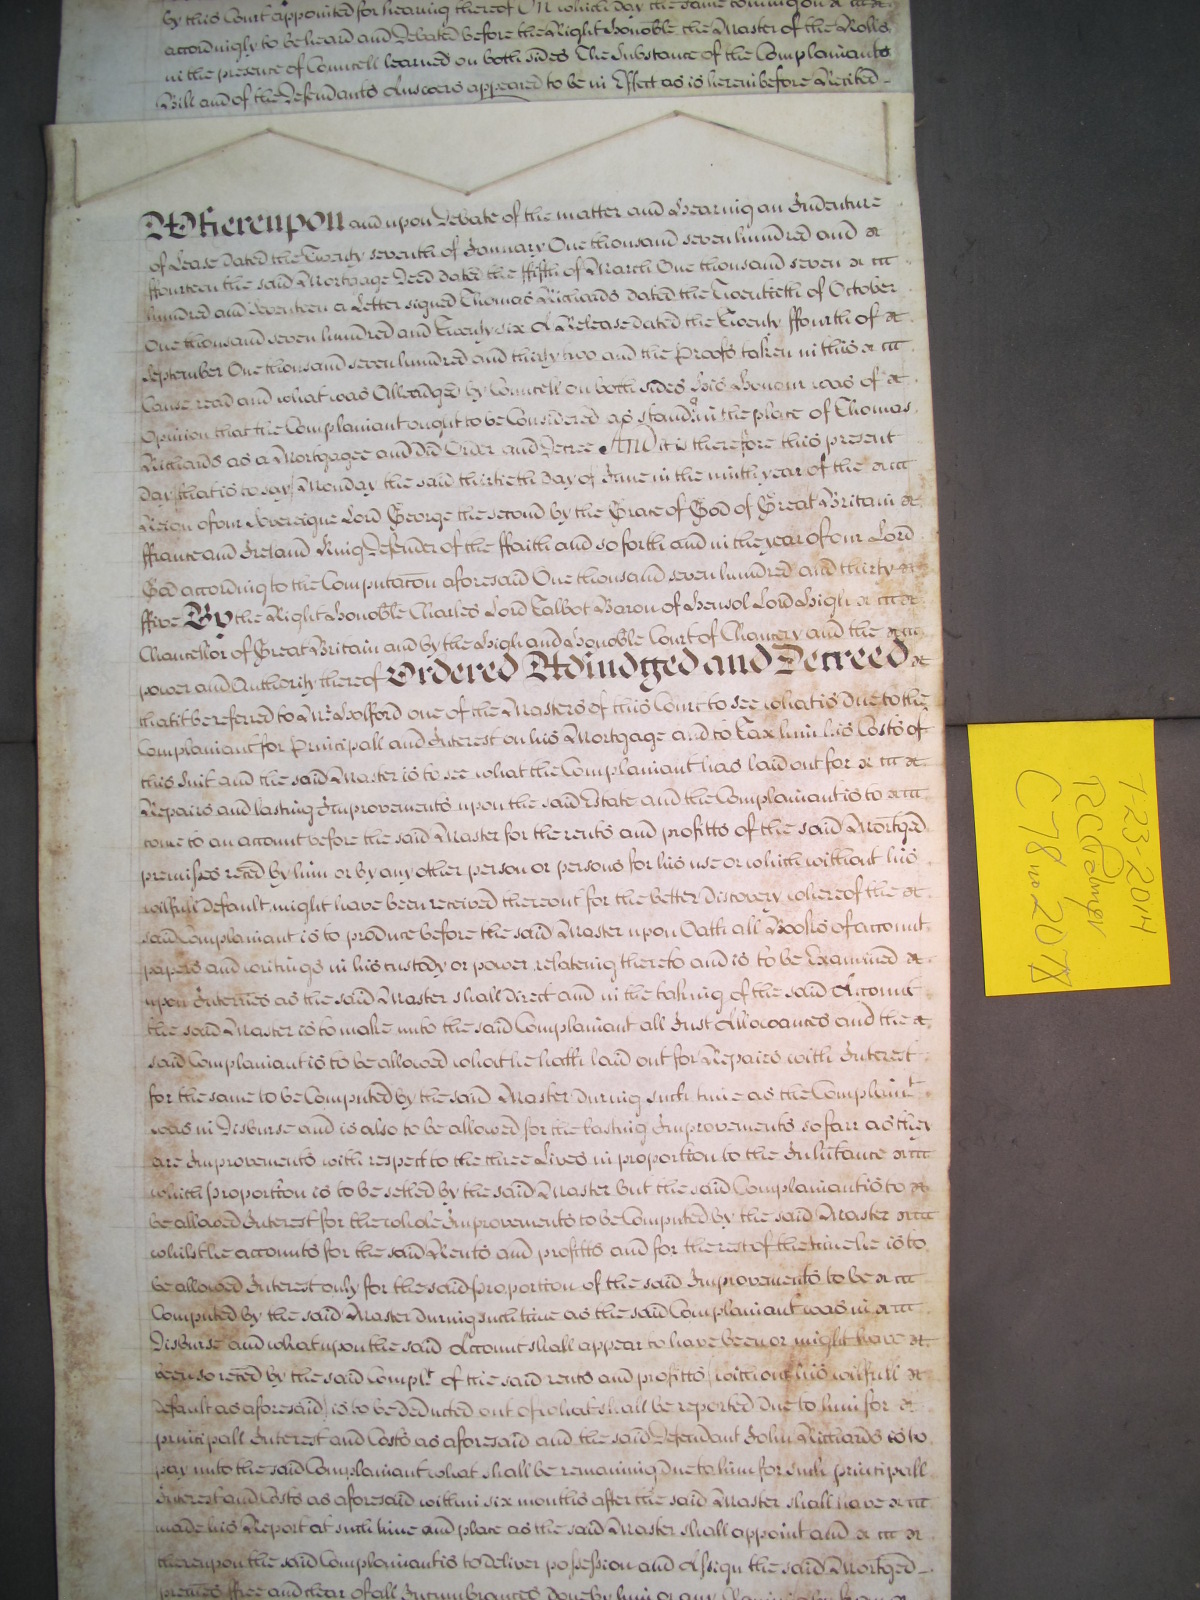 by this Court appointed for hearing thereof On which day the same coming on &
accordingly to be heard and Debated before the Right Honoble the Master of the Rolls
in the presence of Councell learned on both sides The Substance of the Complainants
Bill and of the Defendants Answers appeared to be in Effect as is herein before Recited
Whereupon and upon Debate of the matter and Hearing an Indenture
of Lease dated the Twenty seventh of January One thousand seven hundred and &
ffourteen the said Mortgage Deed dated the ffifth of March One thousand seven &
hundred and Seventeen a Letter signed Thomas Richards dated the Twentieth of October
One thousand seven hundred and Twenty six A Release dated the Twenty ffourth of &
September One thousand seven hundred and thirty two and the Proofs taken in this &
Cause read and what was Alleadged by Councell on both sides His Honour was of &
Opinion that the Complainant ought to be Considered as standing in the place of Thomas
Richards as a Mortgagee and did Order and Decree And it is therefore this present
day (that is to say) Monday the said thirtieth day of June in the ninth year of the &
Reign of our Sovereigne Lord George the second by the Grace of God of Great Britain &
ffrance and Ireland King Defender of the ffaith and so forth and in the year of our Lord
God according to the Computacon aforesaid One thousand seven hundred and thirty &
ffive By the Right Honoble Charles Lord Talbot Baron of Hensol Lord High &
Chancellor of Great Britain and by the High and Honoble Court of Chancery and the &
power and Authority thereof Ordered Adiudged and Decreed &
that it be referred to Mr Holford one of the Masters of this Court to see what is due to the
Complainant for Principall and Interest on his Mortgage and to Tax him his Costs of
this Suit and the said Master is to see what the Complainant has laid out for &
Repairs and lasting Improvements upon the said Estate and the Complainant is to &
come to an account before the said Master for the rents and profitts of the said Mortged
premisses reced by him or by any other person or persons for his use or which without his
wilfull default might have been received thereout for the better Discovery whereof the &
said Complainant is to produce before the said Master upon Oath all Books of account
papers and writings in his custody or power relateing thereto and is to be Examined &
upon Interries as the said Master shall direct and in the taking of the said Account
the said Master is to make unto the said Complainant all Just Allowances and the &
said Complainant is to be allowed what he hath laid out for Repairs with Interest
for the same to be Computed by the said Master during such time as the Complaint
was in Disburse and is also to be allowed for the lasting Improvements so farr as they
are Improvements with respect to the three Lives in proportion to the Inhitance &
which proportion is to be setled by the said Master but the said Complainant is to &
be allowed Interest for the whole Improvements to be Computed by the said Master &
whilst he accounts for the said Rents and profitts and for the rest of the time he is to
be allowed Interest only for the said proportion of the said Improvements to be &
Computed by the said Master during such time as the said Complainant was in &
Disburse and what upon the said Account shall appear to have been or might have &
been so reced by the said Complt of the said rents and profitts (without his wilfull &
default as aforesaid) is to be deducted out of what shall be reported due to him for &
principall Interest and Costs as aforesaid and the said Defendant John Richards is to
pay unto the said Complainant what shall be remaining due to him for such principall
Interest and Costs as aforesaid within six months after the said Master shall have &
made his Report at such time and place as the said Master shall appoint and &
thereupon the said Complainant is to deliver possession and Assign the said Mortged
premes ffree and clear of all Incumbrances done by him or any
7-23-2014
C 78